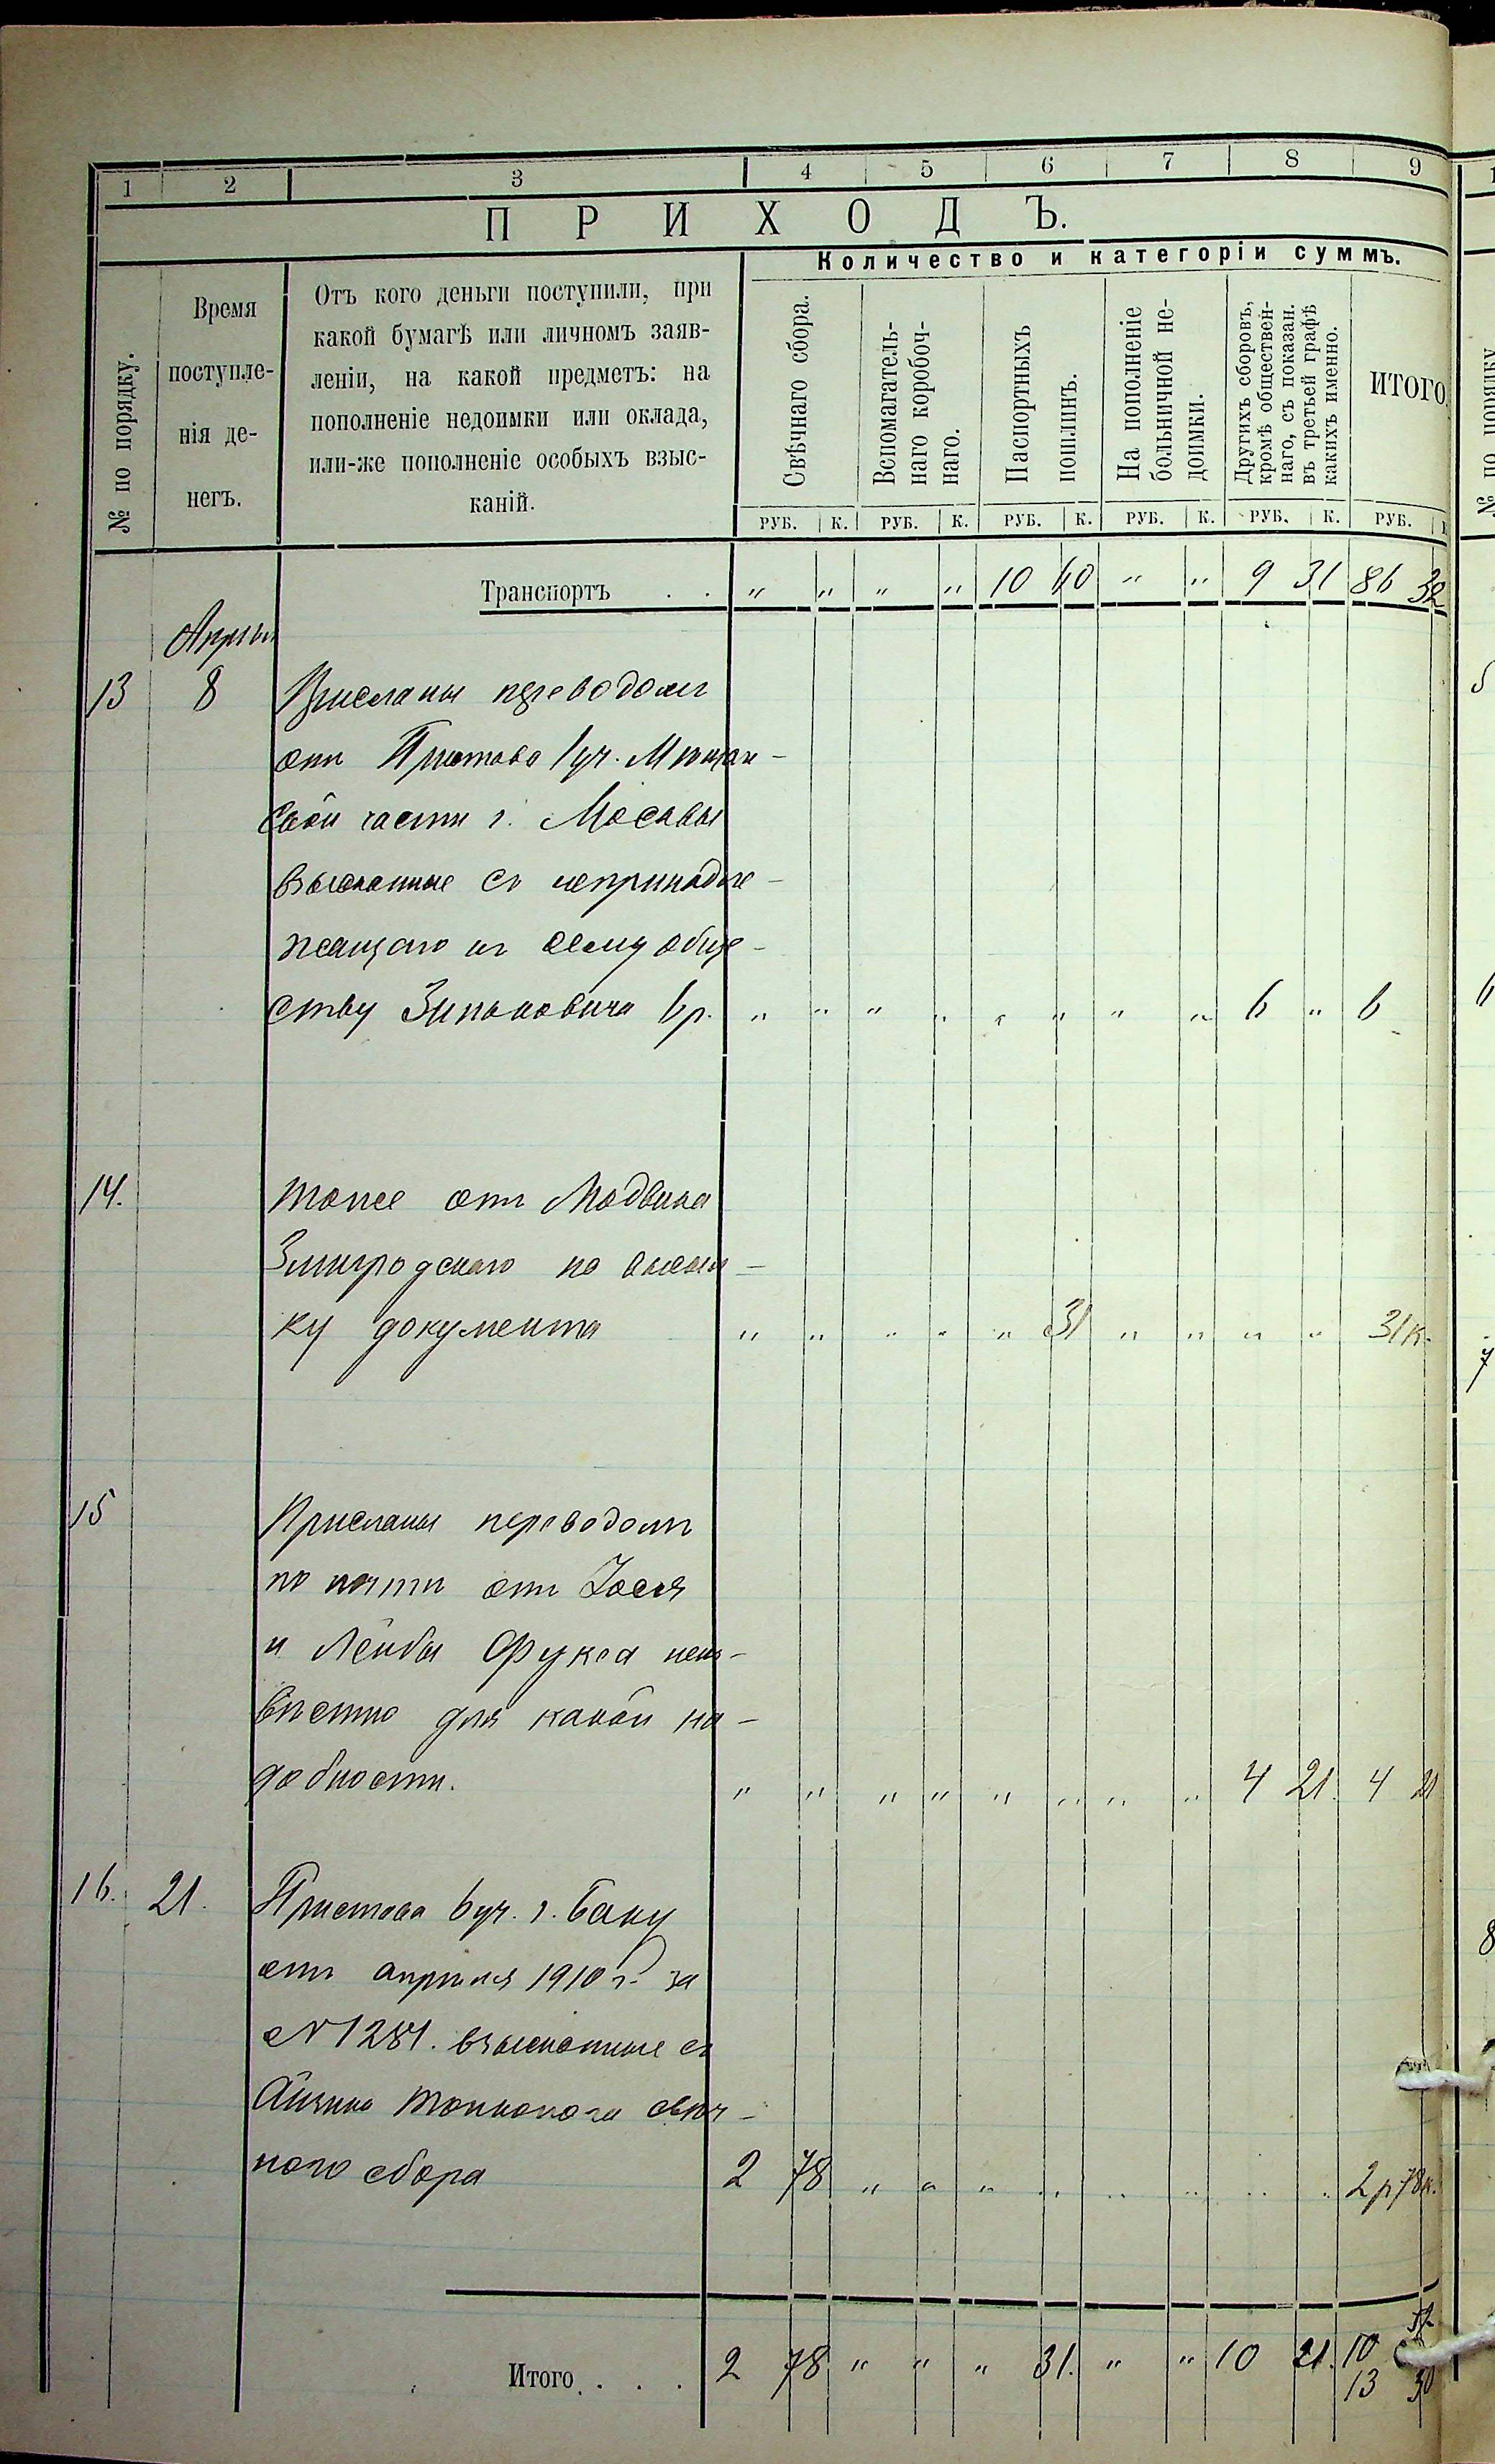 1 2 3 4 5 6 7 8 9
ПРИХОДЪ.
Количество и категоріи суммъ.
№ по порядку.
Время
поступле-
нія де-
негъ.
Отъ кого деньги поступили, при
какой бумагѣ или личномъ заяв-
леніи, на какой предметъ: на
пополненіе недоимки или оклада,
или-же пополненіе особыхъ взыс-
каній.
Свѣчнаго сбора.
Вспомагатель-
наго коробоч-
наго.
Паспортныхъ
пошлинъ.
На пополненіе
больничной не-
доимки.
Другихъ сборовъ,
кромѣ обществен-
наго, съ показан.
въ третьей графѣ
какихъ именно.
ИТОГО
РУБ. К. РУБ. К. РУБ. К. РУБ. К. РУБ. К. РУБ.
Транспортъ . . " " " " 10 40 " " 9 31 86 32
Апрѣля
13 8 Присланы переводомъ
отъ Пристава 1 уч. Мѣщан-
ской части г. Москвы
взысканные съ непринадле-
жащаго къ сему обще-
ству 6 р. " " " " " " " " 6 " 6
14. Тоже отъ
Змигродскаго по
ку документа " " " " " 31 " " " " 31 к.
15 Присланы переводомъ
по почти отъ Іоселя
и Лейбы Фукса неиз-
вѣстно для какой на-
добности. " " " " " " " " 4 21. 4 21
16. 21. Пристава 6 уч. г. Баку
отъ апрѣля 1910 г. за
№ 1281. взысканные съ
свѣч-
ного сбора 2 78 " " " " " " " " 2 р 78 к.
Итого. . . . 2 78 " " " 31. " " 10 21. 10
13 30